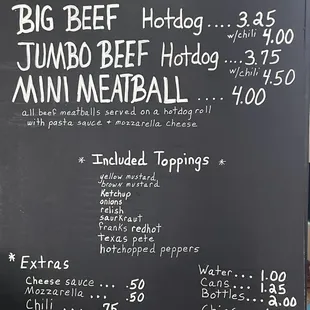 BIG BEEF Hotdog .... 3.25
w/chili 4.00
JUMBO BEEF Hotdog .... 3.75
w/chili 4.50
MINI MEATBALL .... 4.00
all beef meatballs served on a hotdog roll
with pasta sauce + mozzarella cheese
* Included Toppings *
yellow mustard
brown mustard
Ketchup
onions
relish
saurkraut
franks redhot
texas pete
hotchopped peppers
*Extras
Cheese sauce ... .50
Mozzarella ... .50
Chili .75
Water... 1.00
Cans ... 1.25
Bottles... 2.00